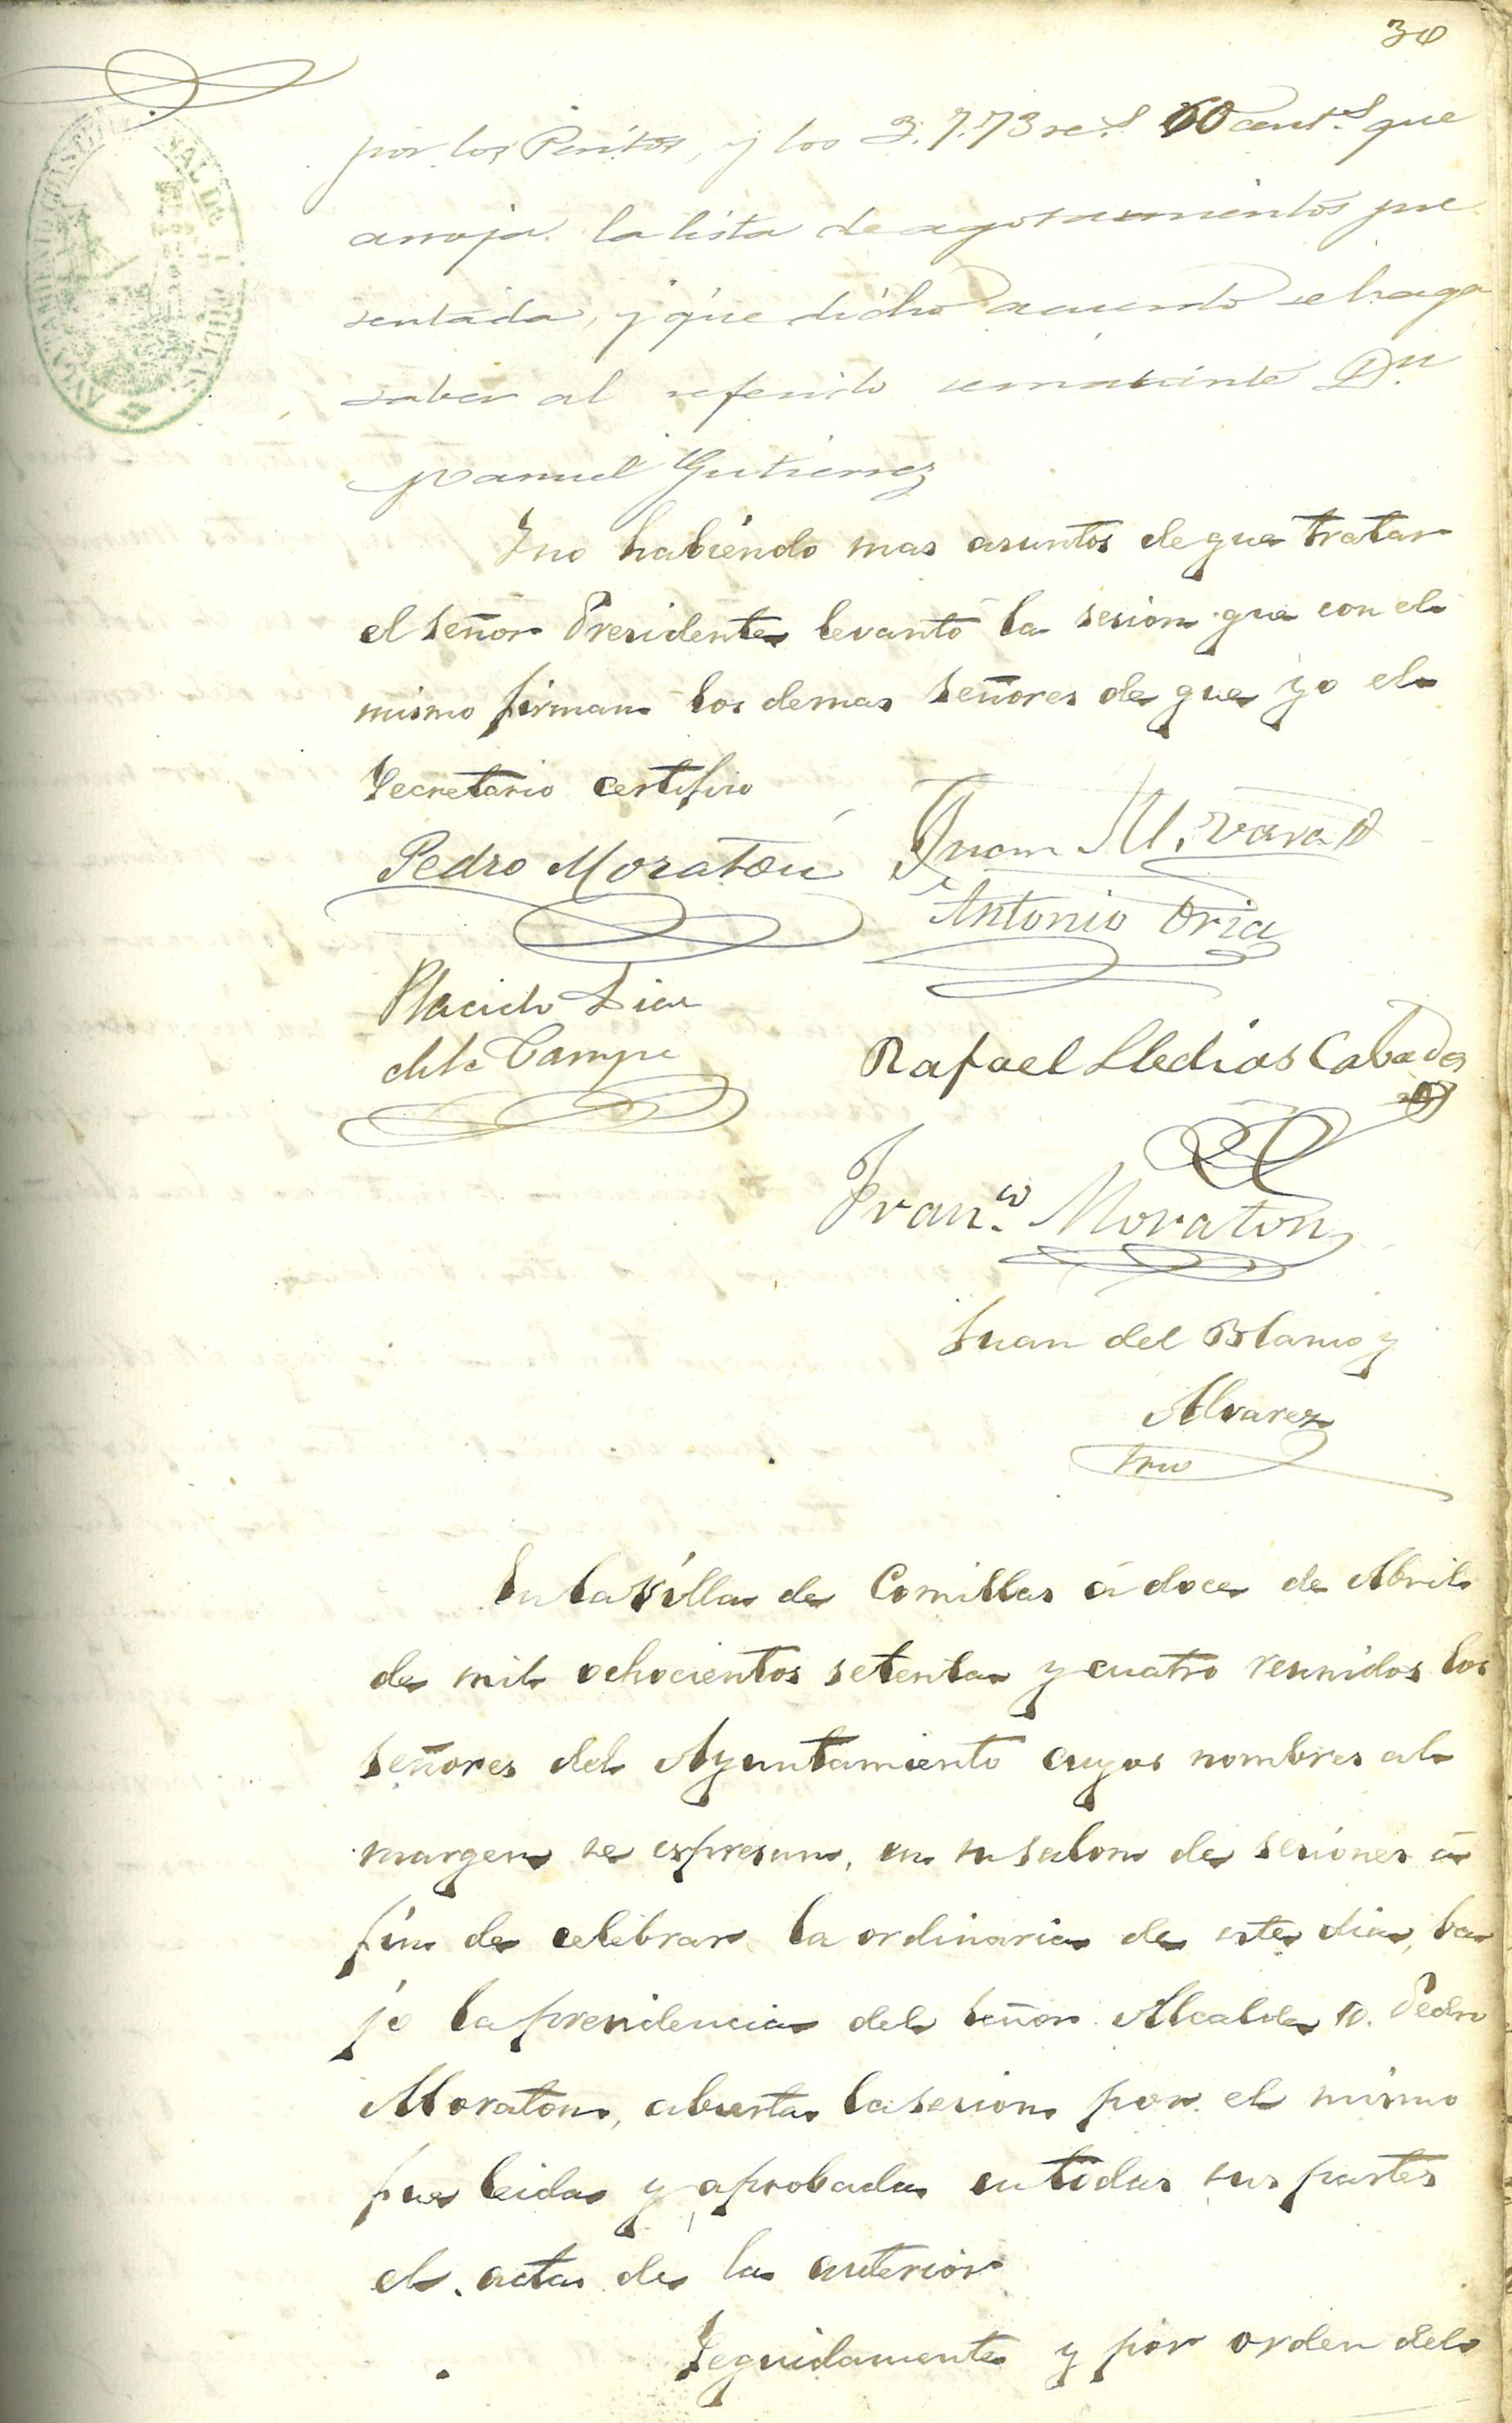 30
por los Peritos, y los 3.773 r.s 60 cent.s que
arroja la lista de agotamientos pre
sentada, y que dicho acuerdo se haga
saber al referido rematante Dn
Manuel Gutierrez
Y no habiendo mas asuntos de que tratar
el señor Presidente levantó la sesion que con el
mismo firman los demas señores de que yo el
Secretario certifico
Pedro Moraton Juan M.
Antonio Oria
Placido Dia
de la Campa
Rafael Lledias Cabeda
Fran.co Moraton
Juan del Blanco y
Alvarez
Srio
En la villa de Comillas á doce de Abril
de mil ochocientos setenta y cuatro reunidos los
señores del Ayuntamiento cuyos nombres al
margen se expresan, en su salon de sesiones á
fin de celebrar la ordinaria de este dia, ba
jo la presidencia del señor Alcalde D. Pedro
Moraton, abierta la sesion por el mismo
fue leida y aprobada en todas sus partes
el acta de la anterior
Seguidamente y por orden del